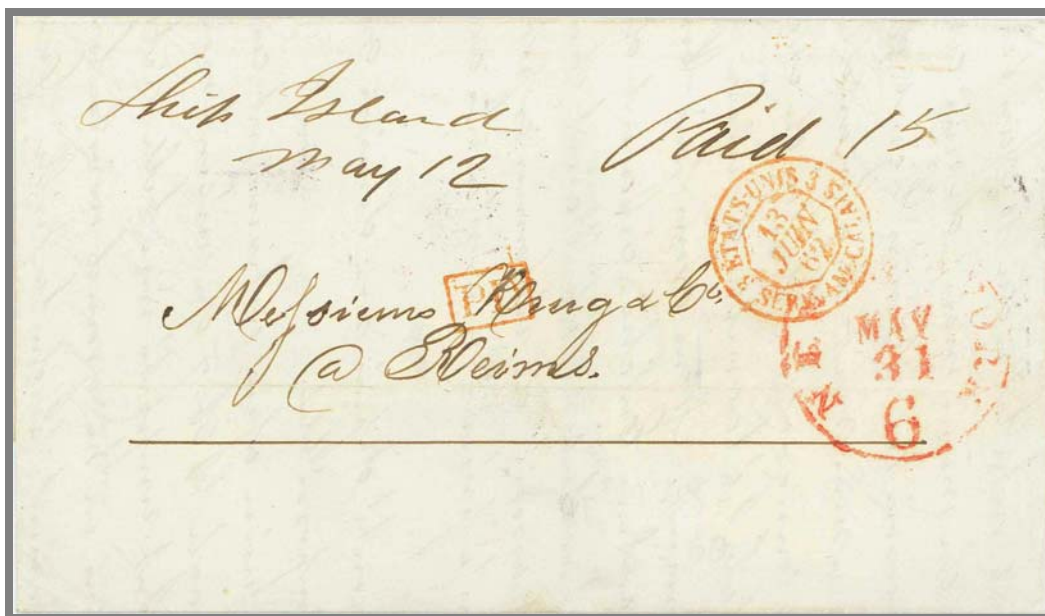 Ship Island
May 12
Paid 15
3 ETATS-UNIS 3 SERV. AM. CALAIS
13
JUIN
62
PD
Messieurs Krug & Co.
a Reims.
NEW YORK
MAY
31
6